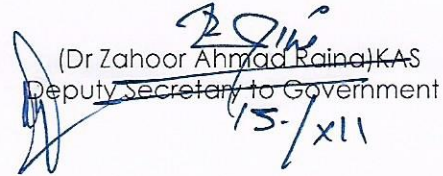 (Dr Zahoor Ahmad Raina)KAS
Deputy Secretary to Government
15-/XII